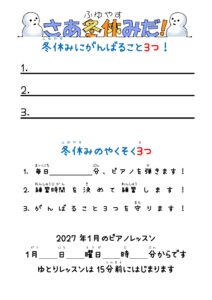 ふゆやす
さあ冬休みだ!
冬休みにがんばること3つ!
1.
2.
3.
冬休みのやくそく3つ
1. 毎日______分、ピアノを弾きます!
2. 練習時間を決めて練習します!
3. がんばること3つを守ります!
2027年1月のピアノレッスン
1月___日___曜日___時___分からです
ゆとりレッスンは15分前にはじまります